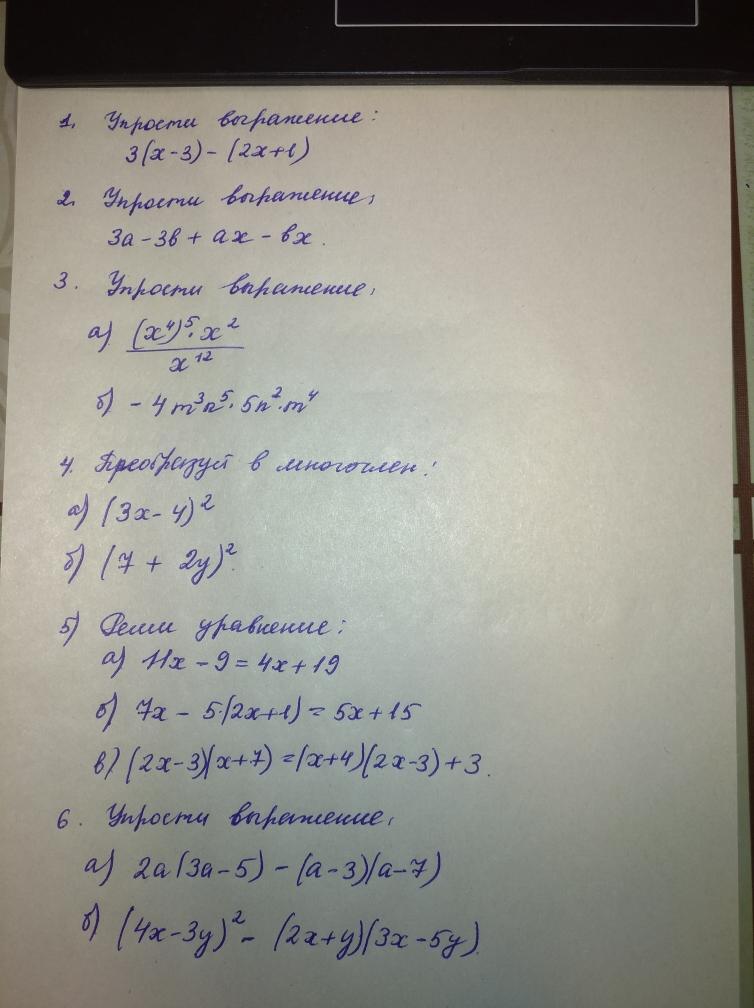 1. Упрости выражение:
3(x-3) - (2x+1)
2. Упрости выражение,
3a - 3b + ax - bx.
3. Упрости выражение,
а) (x⁴)⁵·x² / x¹²
б) - 4m³n⁵·5n²·m⁴
4. Преобразуй в многочлен:
а) (3x - 4)²
б) (7 + 2y)².
5) Реши уравнение:
а) 11x - 9 = 4x + 19
б) 7x - 5·(2x+1) = 5x + 15
в) (2x-3)(x+7) = (x+4)(2x-3) + 3.
6. Упрости выражение,
а) 2a(3a-5) - (a-3)(a-7)
б) (4x-3y)² - (2x+y)(3x-5y).